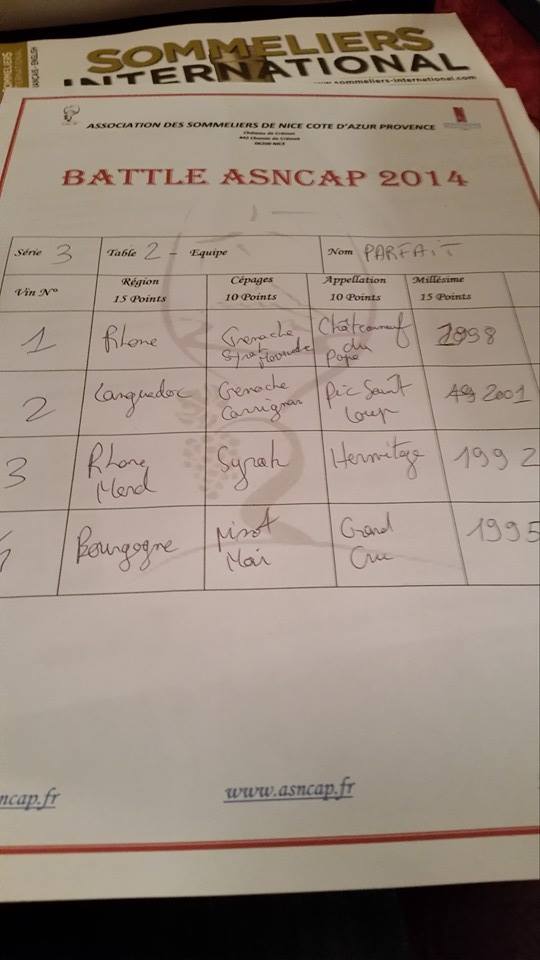 SOMMELIERS
INTERNATIONAL
www.sommeliers-international.com
ASSOCIATION DES SOMMELIERS DE NICE COTE D'AZUR PROVENCE
Château de Crémat
442 Chemin de Crémat
06200 NICE
BATTLE ASNCAP 2014
Série 3 Table 2 - Equipe Nom PARFAIT
Vin N° Région 15 Points Cépages 10 Points Appellation 10 Points Millésime 15 Points
1 Rhone Grenache Syrah Mourvedre Châteauneuf du Pape 1998
2 Languedoc Grenache Carrignan Pic Saint Loup 2001
3 Rhone Merid Syrah Hermitage 1992
Bourgogne Pinot Noir Grand Cru 1995
ncap.fr www.asncap.fr